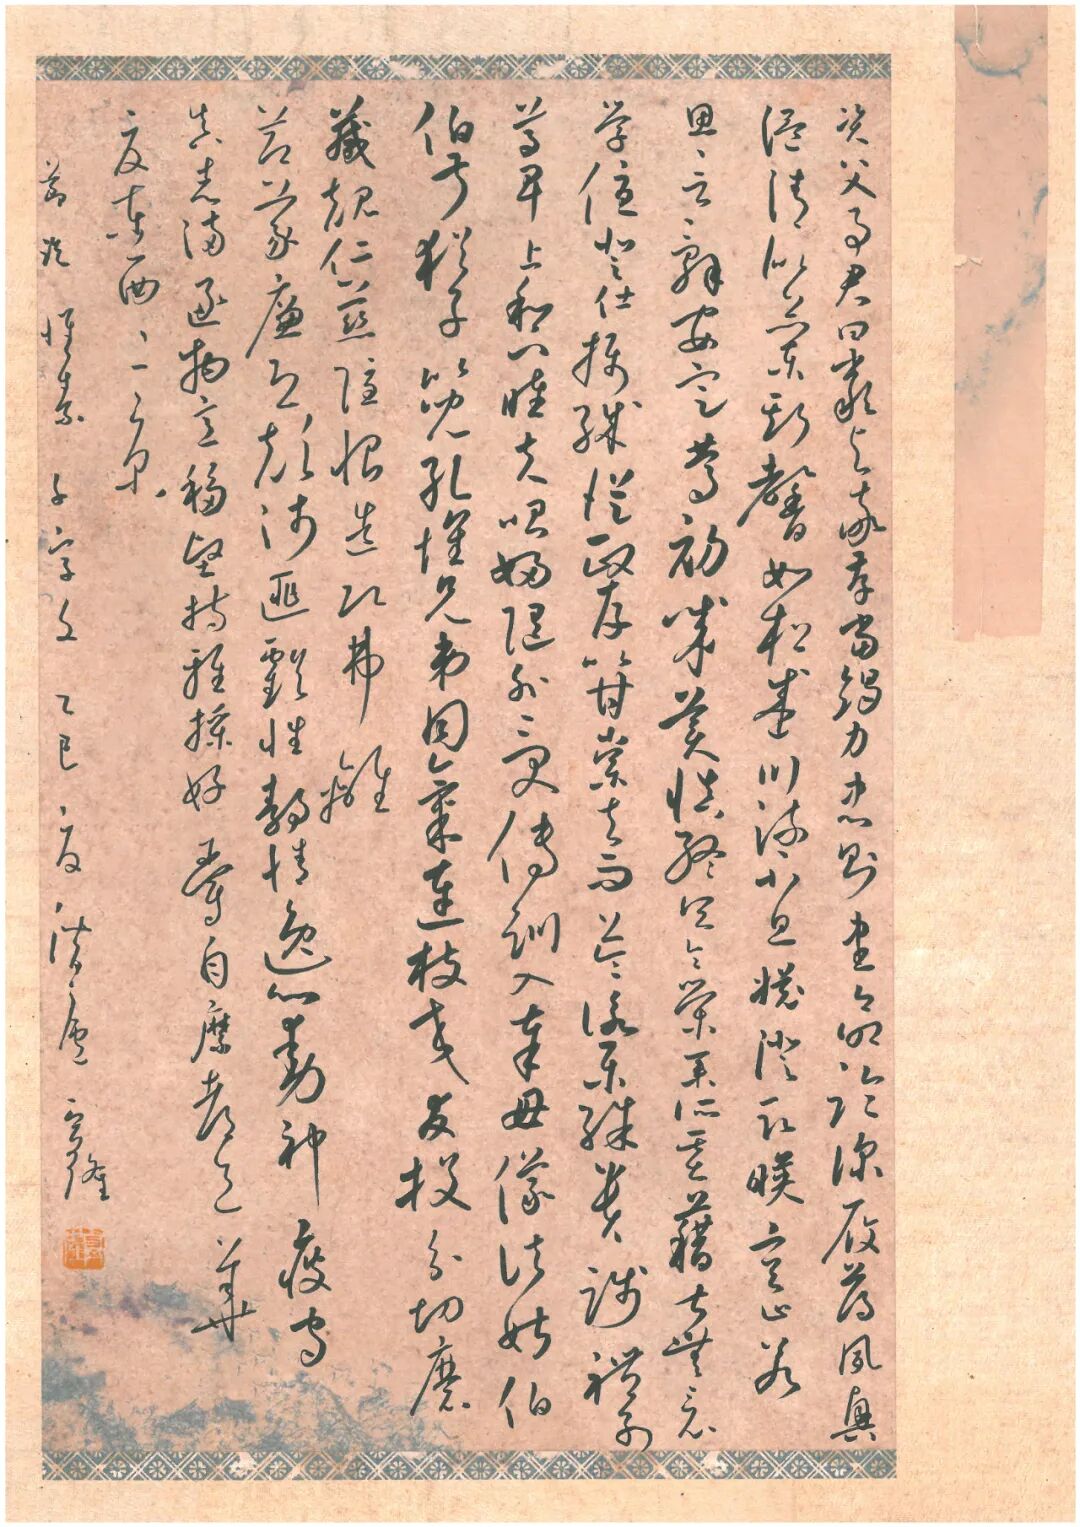 资父事君曰严与敬孝当竭力忠则尽命临深履薄夙兴
温凊似兰斯馨如松之盛川流不息渊澄取映容止若
思言辞安定笃初诚美慎终宜令荣业所基藉甚无竟
学优登仕摄职从政存以甘棠去而益咏乐殊贵贱礼别
尊卑上和下睦夫唱妇随外受傅训入奉母仪诸姑伯
伯叔犹子比儿孔怀兄弟同气连枝交友投分切磨
箴规仁慈隐恻造次弗离
节义廉退颠沛匪亏性静情逸心动神疲守
真志满逐物意移坚持雅操好爵自縻都邑华
夏东西二京
节临怀素千字文 乙巳夏